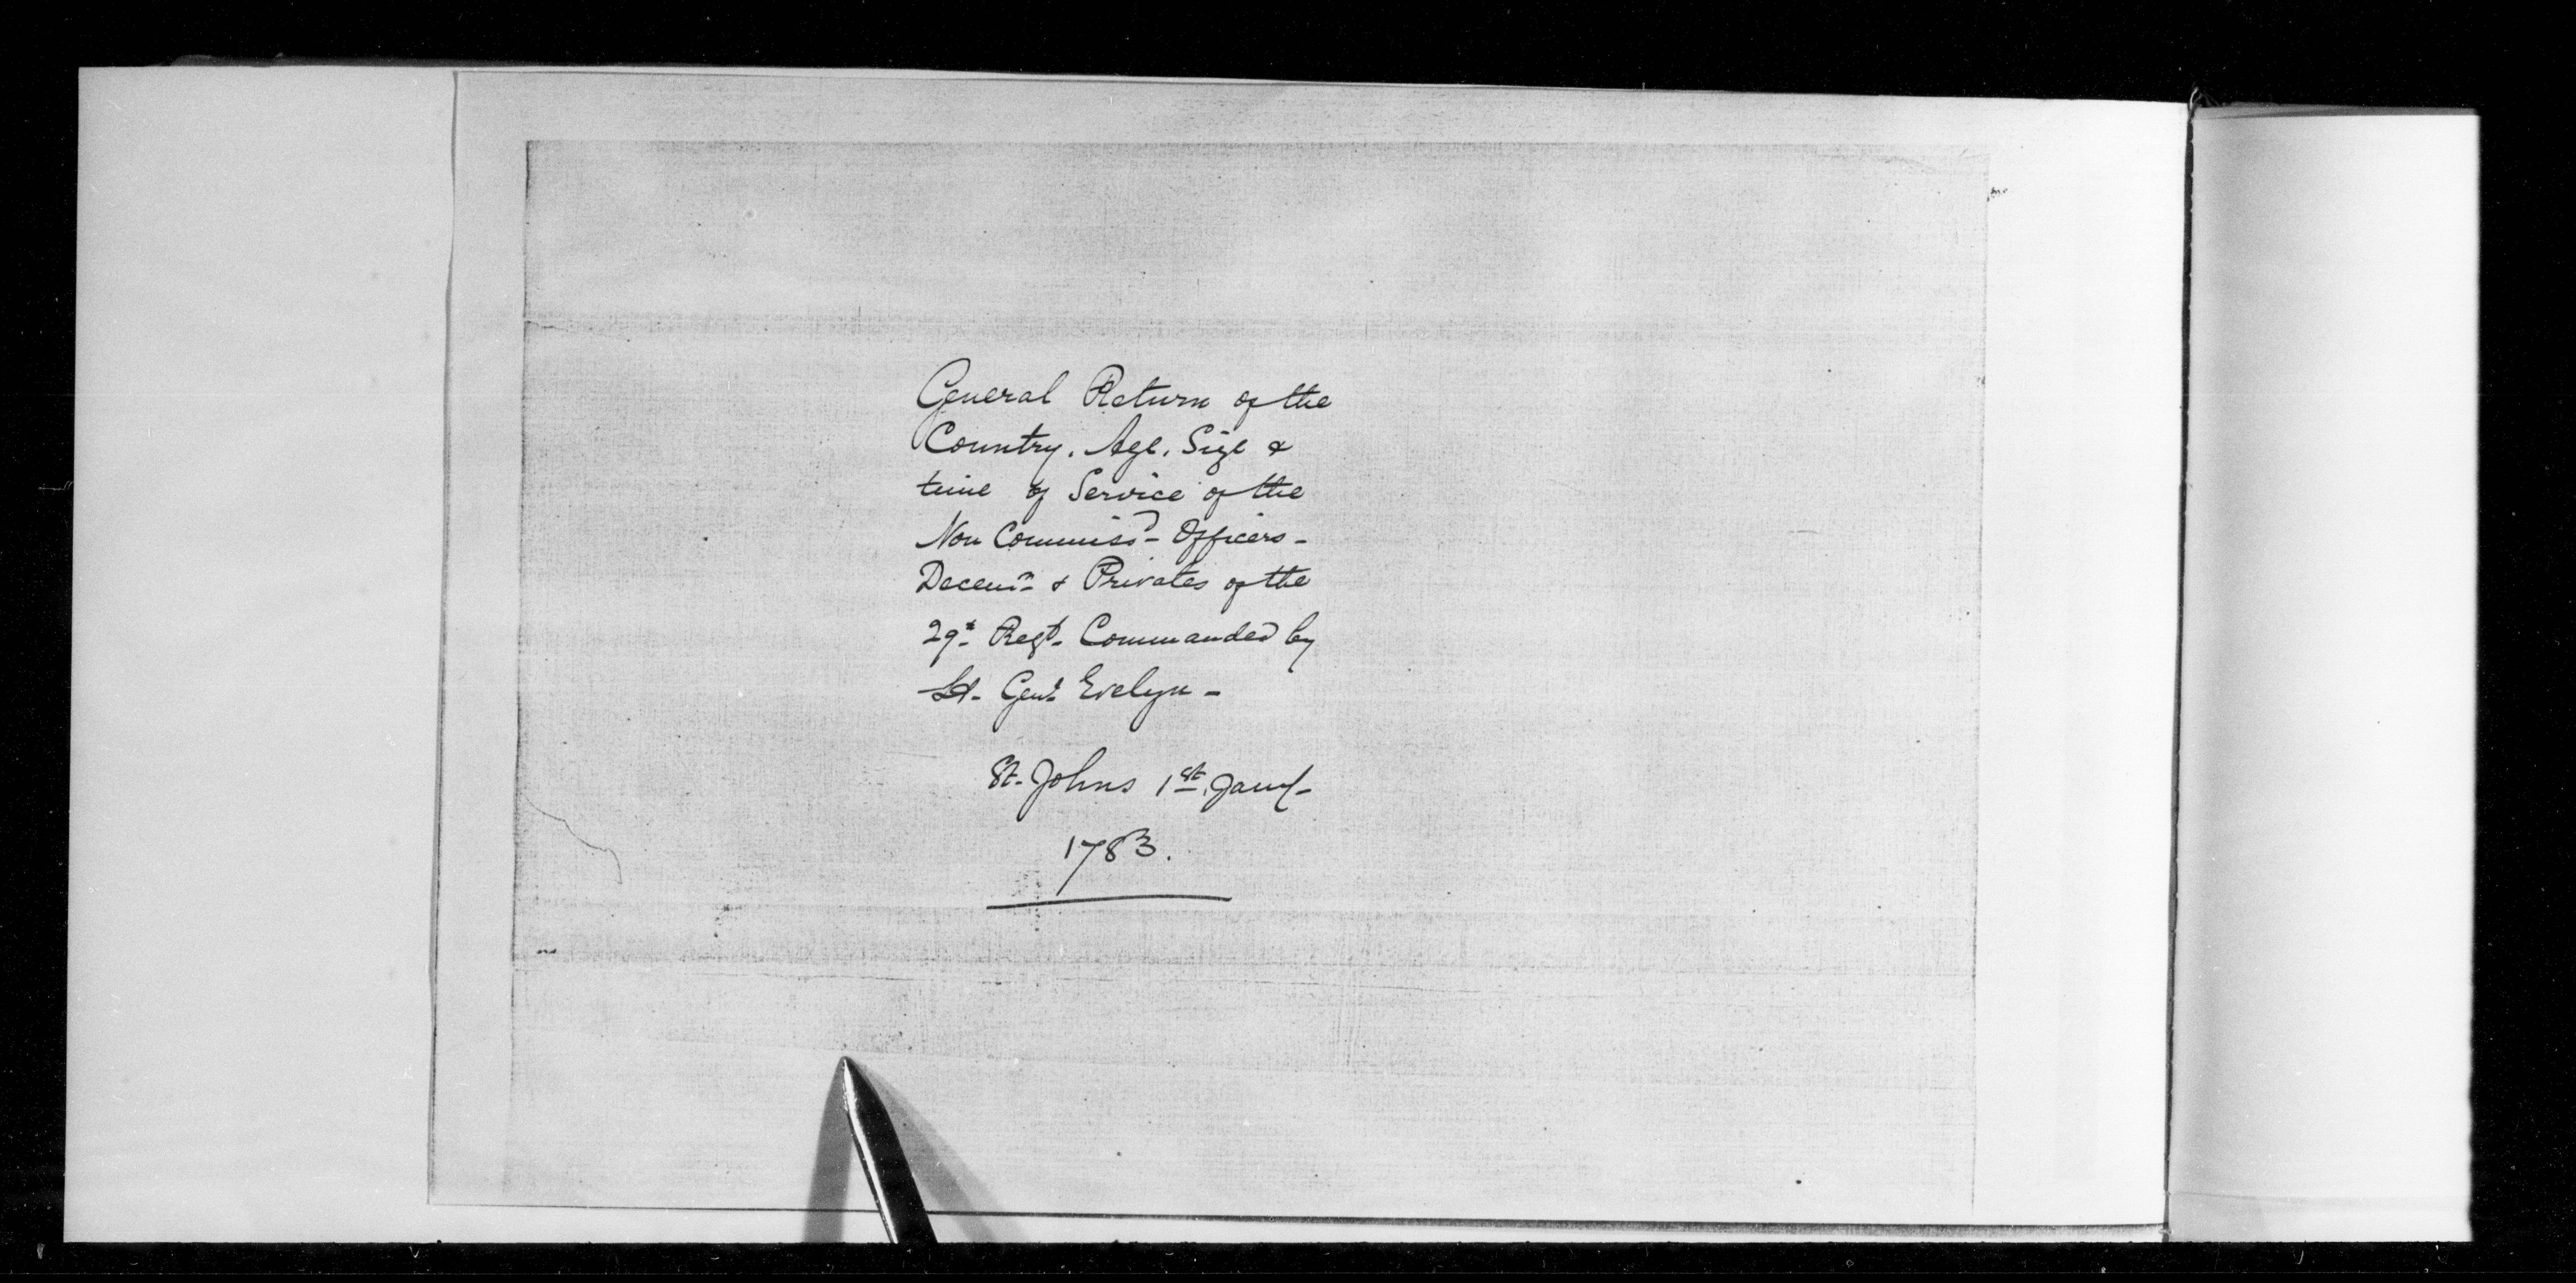 General Return of the
Country, Age, Size &
time of Service of the
Non Commiss.d Officers -
& Privates of the
29.t Regt. Commanded by
Lt. Genl. Evelyn -
St. Johns 1st. Jany.
1783.